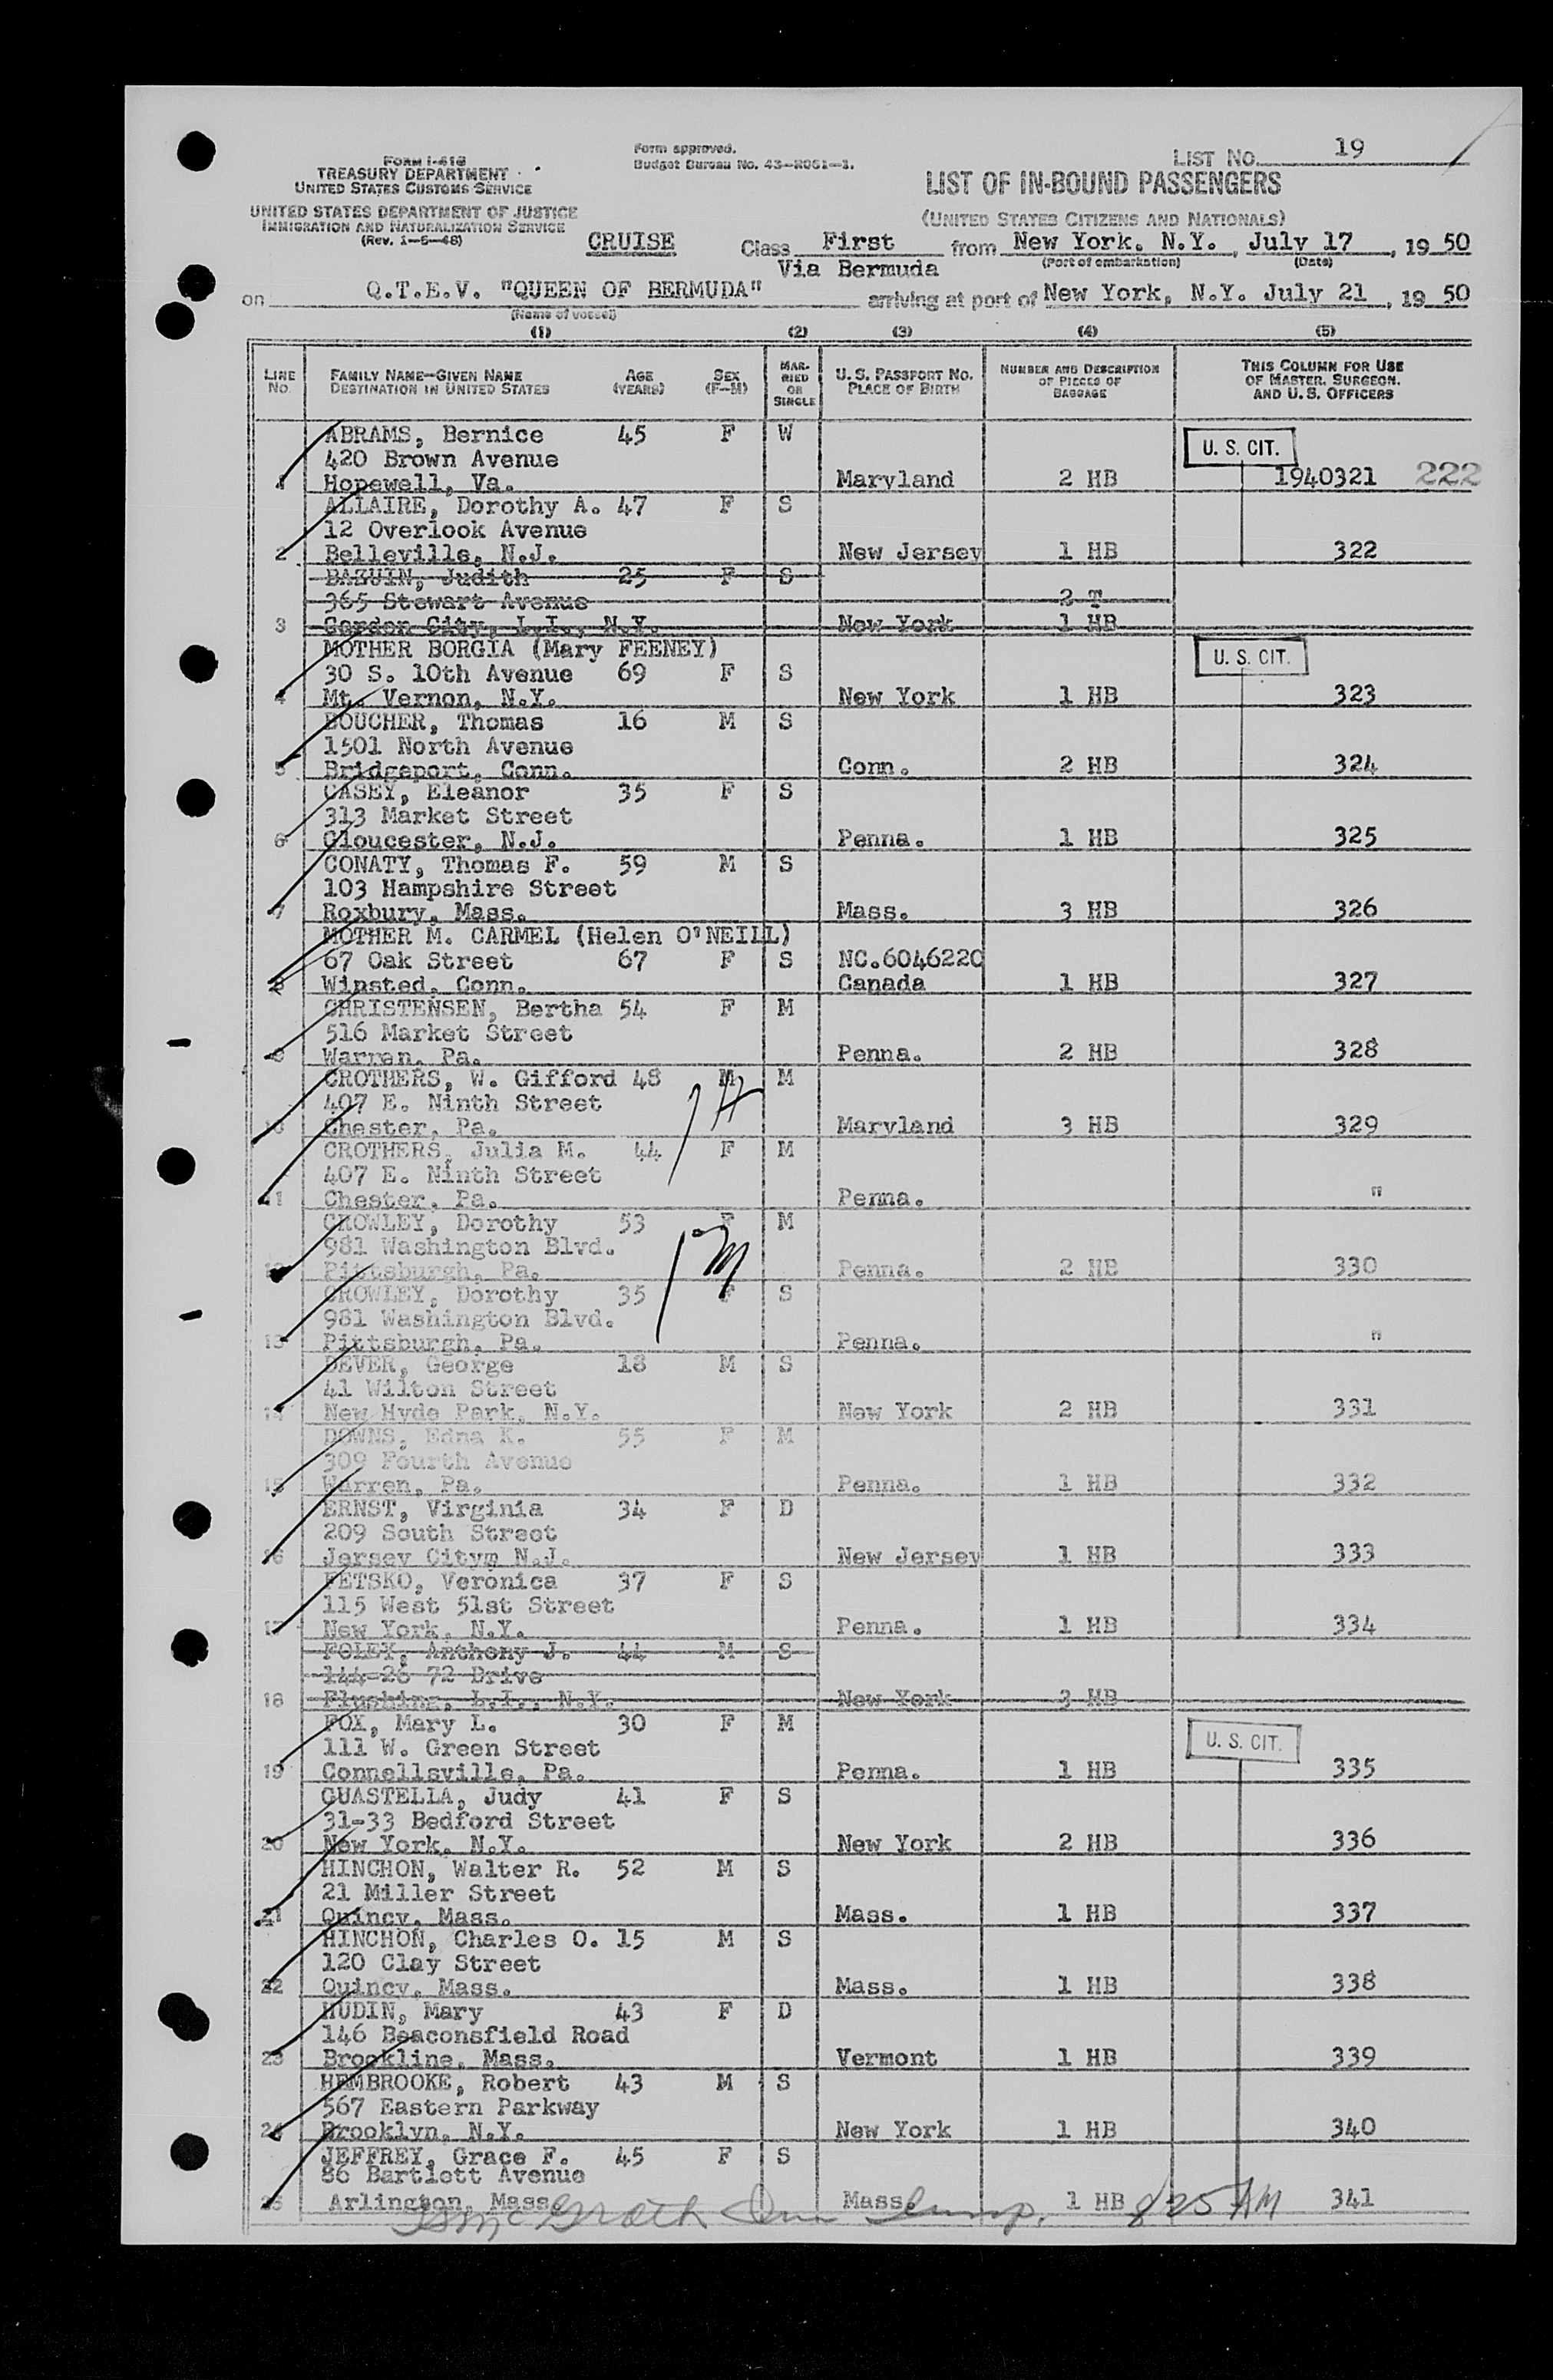 FORM I-418
TREASURY DEPARTMENT
UNITED STATES CUSTOMS SERVICE
UNITED STATES DEPARTMENT OF JUSTICE
IMMIGRATION AND NATURALIZATION SERVICE
(Rev. 1-5-48)
Form approved.
Budget Bureau No. 43-R061-1.
LIST NO. 19
LIST OF IN-BOUND PASSENGERS
(UNITED STATES CITIZENS AND NATIONALS)
CRUISE Class First from New York. N.Y., July 17, 1950
Via Bermuda (Port of embarkation) (Date)
on Q.T.E.V. "QUEEN OF BERMUDA" arriving at port of New York, N.Y. July 21, 1950
(Name of vessel)
(1) (2) (3) (4) (5)
LINE NO. FAMILY NAME—GIVEN NAME DESTINATION IN UNITED STATES AGE (YEARS) SEX (F—M) MARRIED OR SINGLE U. S. PASSPORT NO. PLACE OF BIRTH NUMBER AND DESCRIPTION OF PIECES OF BAGGAGE THIS COLUMN FOR USE OF MASTER, SURGEON, AND U. S. OFFICERS
ABRAMS, Bernice 45 F W
420 Brown Avenue U. S. CIT.
1 Hopewell, Va. Maryland 2 HB 1940321 222
ALLAIRE, Dorothy A. 47 F S
12 Overlook Avenue
2 Belleville, N.J. New Jersey 1 HB 322
BAZUIN, Judith 25 F S
365 Stewart Avenue 2 T
3 Garden City, L.I., N.Y. New York 1 HB
MOTHER BORGIA (Mary FEENEY) U. S. CIT.
30 S. 10th Avenue 69 F S
4 Mt. Vernon, N.Y. New York 1 HB 323
BOUCHER, Thomas 16 M S
1501 North Avenue
5 Bridgeport, Conn. Conn. 2 HB 324
CASEY, Eleanor 35 F S
313 Market Street
6 Gloucester, N.J. Penna. 1 HB 325
CONATY, Thomas F. 59 M S
103 Hampshire Street
7 Roxbury, Mass. Mass. 3 HB 326
MOTHER M. CARMEL (Helen O'NEILL)
67 Oak Street 67 F S NC.6046220
8 Winsted, Conn. Canada 1 HB 327
CHRISTENSEN, Bertha 54 F M
516 Market Street
9 Warren, Pa. Penna. 2 HB 328
CROTHERS, W. Gifford 48 M M
407 E. Ninth Street
10 Chester, Pa. Maryland 3 HB 329
CROTHERS, Julia M. 44 F M
407 E. Ninth Street
11 Chester, Pa. Penna. "
CROWLEY, Dorothy 53 F M
981 Washington Blvd.
12 Pittsburgh, Pa. Penna. 2 HB 330
CROWLEY, Dorothy 35 F S
981 Washington Blvd.
13 Pittsburgh, Pa. Penna. "
DEVER, George 18 M S
41 Wilton Street
14 New Hyde Park, N.Y. New York 2 HB 331
DOWNS, Edna K. 55 F M
309 Fourth Avenue
15 Warren, Pa. Penna. 1 HB 332
ERNST, Virginia 34 F D
209 South Street
16 Jersey Citym N.J. New Jersey 1 HB 333
FETSKO, Veronica 37 F S
115 West 51st Street
17 New York, N.Y. Penna. 1 HB 334
FOLEY, Anthony J. 44 M S
144-26 72 Drive
18 Flushing, L.I., N.Y. New York 3 HB
FOX, Mary L. 30 F M
111 W. Green Street U. S. CIT.
19 Connellsville, Pa. Penna. 1 HB 335
GUASTELLA, Judy 41 F S
31-33 Bedford Street
20 New York, N.Y. New York 2 HB 336
HINCHON, Walter R. 52 M S
21 Miller Street
21 Quincy, Mass. Mass. 1 HB 337
HINCHON, Charles O. 15 M S
120 Clay Street
22 Quincy, Mass. Mass. 1 HB 338
HUDIN, Mary 43 F D
146 Beaconsfield Road
23 Brookline, Mass. Vermont 1 HB 339
HEMBROOKE, Robert 43 M S
567 Eastern Parkway
24 Brooklyn, N.Y. New York 1 HB 340
JEFFREY, Grace F. 45 F S
86 Bartlett Avenue
25 Arlington, Mass. Mass. 1 HB 341
McGrath 825 AM